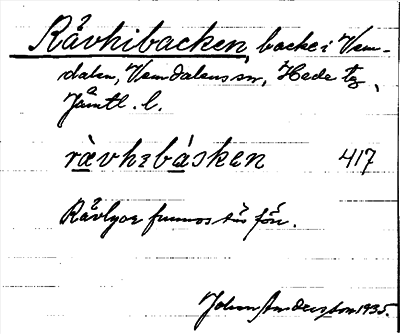 Råvhibacken, backe i Vem-
dalen, Vemdalens sn, Hede tg,
Jämtl. l.
ràvhɛbásken 417
Råvlyor funnos där förr.
Johan Anderson 1935.